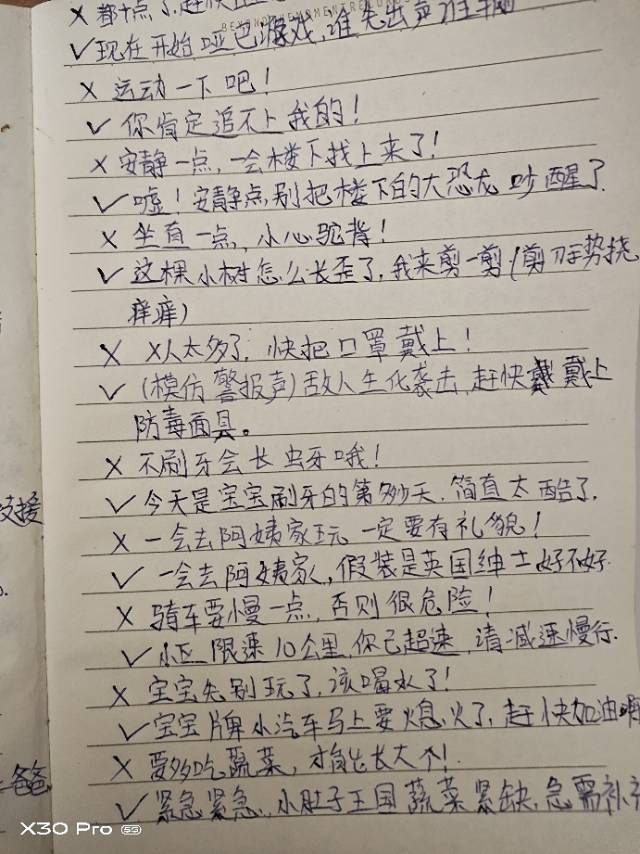 × 都十点了,赶快
BEYOND
MOMENT
✓现在开始哑巴游戏,谁先出声谁
× 运动一下吧!
✓ 你肯定追不上我的!
× 安静一点,一会楼下找上来了!
✓嘘!安静点,别把楼下的大恐龙吵醒了
× 坐直一点,小心驼背!
✓ 这棵小树怎么长歪了,我来剪一剪(剪刀手势挠
痒痒)
× 人太多了,快把口罩戴上!
✓(模仿警报声)敌人生化袭击,赶快戴上
防毒面具。
× 不刷牙会长虫牙哦!
✓今天是宝宝刷牙的第多少天,简直太酷了.
× 一会去阿姨家玩 一定要有礼貌!
支援
✓ 一会去阿姨家,假装是英国绅士好不好
× 骑车要慢一点,否则很危险!
✓小区限速10公里,你已超速,请减速慢行.
× 宝宝先别玩了,该喝水了!
✓宝宝牌小汽车马上要熄火了,赶快加油啊
× 要多吃蔬菜,才能长大个!
爸爸
✓紧急紧急,小肚子王国蔬菜紧缺,急需补
X30 Pro 5G